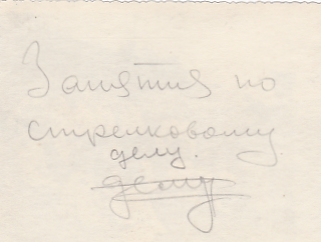 Занятия по
стрелковому
делу.
делу